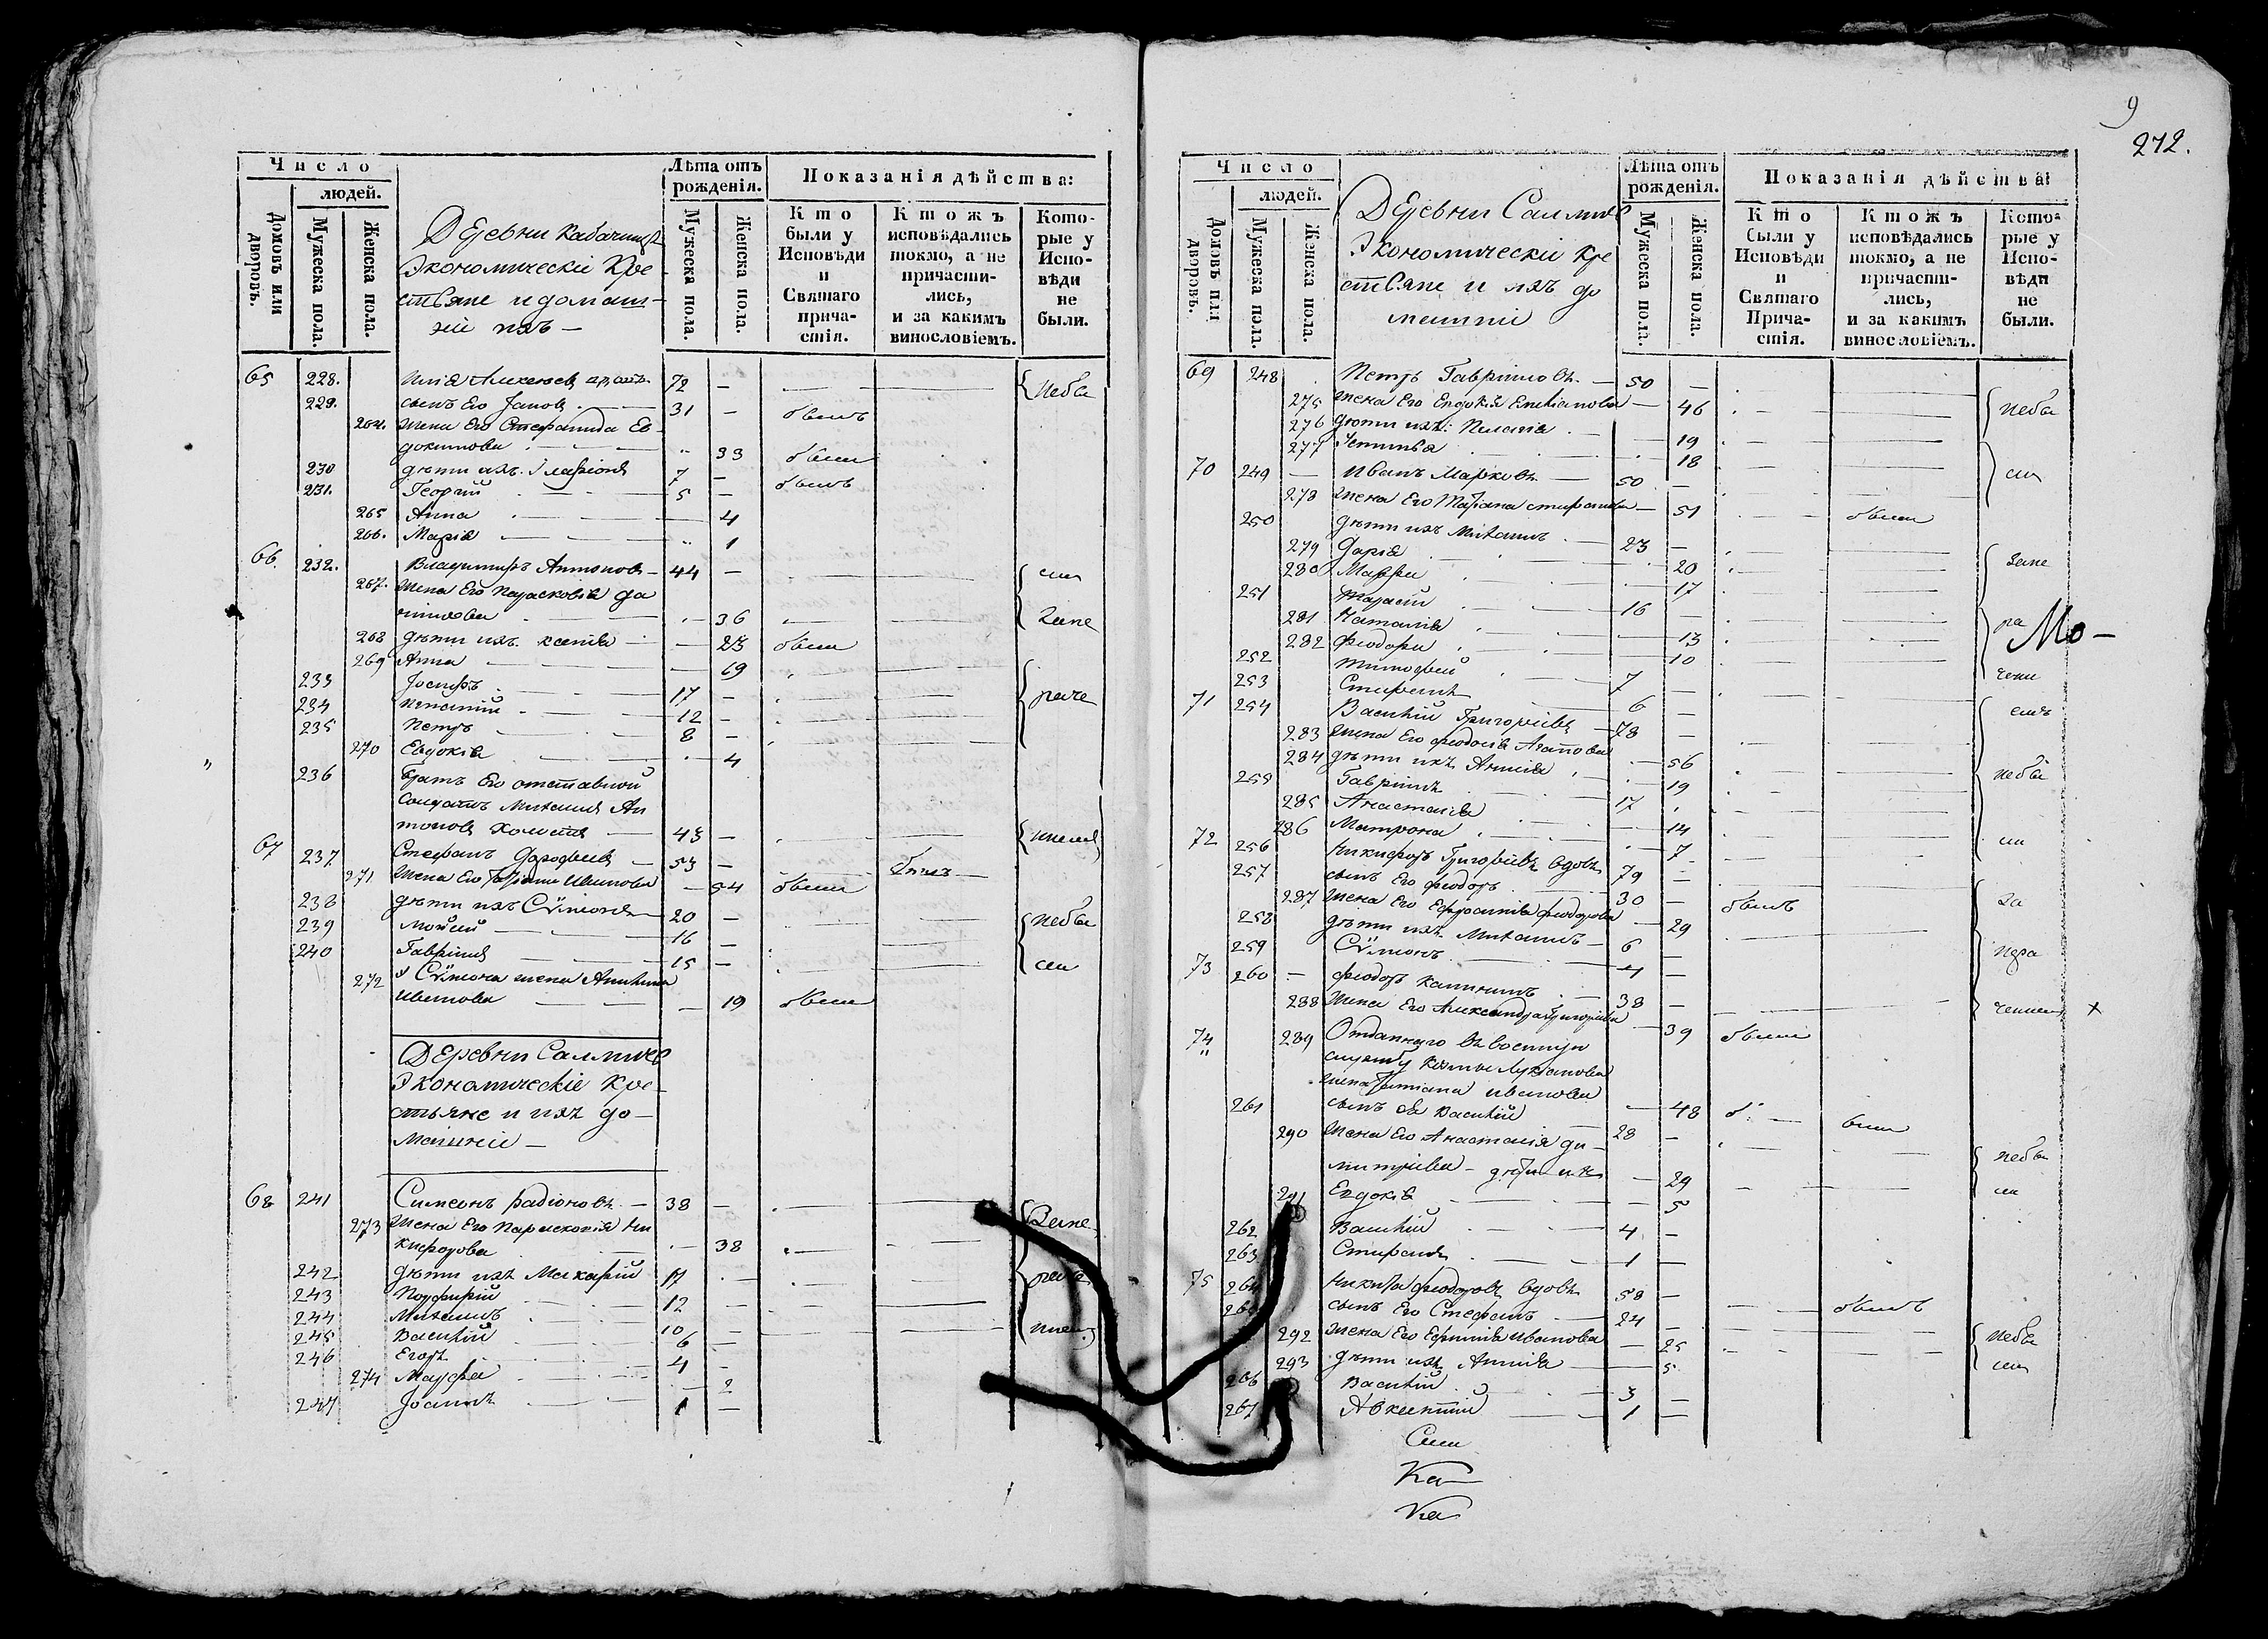 9
272.
Число
людей.
Домовъ или дворовъ.
Мужеска пола.
Женска пола.
Деревни
Экономическіе Кре
стьяне и домаш-
ніи ихъ —
Лѣта отъ рожденія.
Мужеска пола.
Женска пола.
Показанія дѣйства:
Кто были у Исповѣди и Святаго причастія.
Ктожъ исповѣдались токмо, а не причастились, и за какимъ винословіемъ.
Которые у Исповѣди не были.
65 228. Илія Алексеевъ 72 — небы
229. сынъ Его Іаковъ 31 — былъ
264. жена Его Стефанида Ев
докимова 33 была
230 дѣти ихъ Иларіонъ 7 — былъ
231. Георгій 5 —
265 Анна 4
266. Марія 1
66. 232. Владимиръ Антоновъ 44 — сли
267. жена Его Парасковія Да
ниилова 36 Зане
268 дѣти ихъ Ксенія 23 была
269 Анна 19
233 Іосифъ 17 — раче
234 Игнатій 12 —
235 Петръ 8 —
270 Евдокія 4
236 братъ Его отставной
солдатъ Михаилъ Ан
тоновъ 43 — ніемъ
67 237 Стефанъ Дорофеевъ 53 —
271 жена Его Ивлиова 54 была
238 дѣти ихъ Сѵмеонъ 20 — небы
239 Мойсей 16 —
240 Гавріилъ 15 — сли
272 у Сѵмеона жена
Иванова 19 была
Деревни
Экономическіе Кре-
стьяне и ихъ до-
машніи —
68 241 Симеонъ Радіоновъ 38 — Зане
273 жена Его Параскевія Ни
кифорова 38
242 дѣти ихъ Макарій 17 раче
243 Порфирій 12 —
244 Михаилъ 10 — ніем
245 Василій 6 —
246 Егоръ 4 —
274 Марфа 2
247 Іоаннъ 1 —
Число
людей.
Домовъ или дворовъ.
Мужеска пола.
Женска пола.
Деревни
Экономическіи Кре
стьяне и ихъ до
машніи
Лѣта отъ рожденія.
Мужеска пола.
Женска пола.
Показанія дѣйства:
Кто были у Исповѣди и Святаго Причастія.
Ктожъ исповѣдались токмо, а не причастились, и за какимъ винословіемъ.
Которые у Исповѣди не были.
69 248 Петръ Гавриловъ — 50 —
275 жена Его Евдокія Емеліанова — 46 небы
276 дѣти ихъ: Пелагія 19
277 Устинья 18
70 249 — Иванъ Марковъ — 50 — сли
278 жена Его Стефанова — 51 была
250 дѣти ихъ Михаилъ 23 —
279 Дарія 20 Зане
280 Марфа 17
251 Тарасій 16 —
281 Наталія 13 ра Мо —
282 Феодора 10
252 Тимофей 7 — чені
253 Стефанъ 6 —
71 254 Василій Григорьевъ — 78 — емъ
283 жена Его Феодосія Агапова 56
284 дѣти ихъ 19 небы
255 Гавріилъ 17
285 Анастасія 14
286 Матрона 7 сли
72 256 Никифоръ Григорьевъ вдовъ 79 —
257 сынъ Его Феодоръ 30 — былъ За
287 жена Его Ефросинія Феодорова 29
258 дѣти ихъ Михаилъ — 6 —
259 Сѵмеонъ 4 — нера
73 260 — Феодоръ Калининъ 38 —
288 жена Его Александра Григорьева 39 была ченіемъ ×
74 289 Отданнаго въ военную
службу Козмы Лукіанова
жена Татіана Иванова 48 б: — была
261 сынъ Ея Василій 28 —
290 жена Его Анастасія Ди
митріева — дѣти их 29 небы
291 Евдокія 5 сли
262 Василій 4 —
263 Стефанъ 1 —
75 264 Никита Феодоровъ вдовъ 58 — былъ
265 сынъ Его Стефанъ 24 —
292 жена Его Ефимія Иванова — 25 небы
293 дѣти ихъ 5 сли
266 Василій 3 —
267 Авксентій 1 —
Ка
Ка